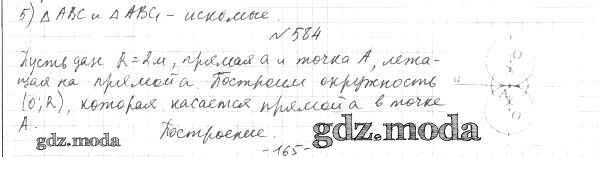 5) △ABC и △ABC₁ - искомые.
№584
Пусть дан R=2м, прямая a и точка A, лежа-
щая на прямой a. Построим окружность
(O;R), которая касается прямой a в точке
A.
Построение.
-165-
gdz.moda
gdz.moda
a
O
A
O